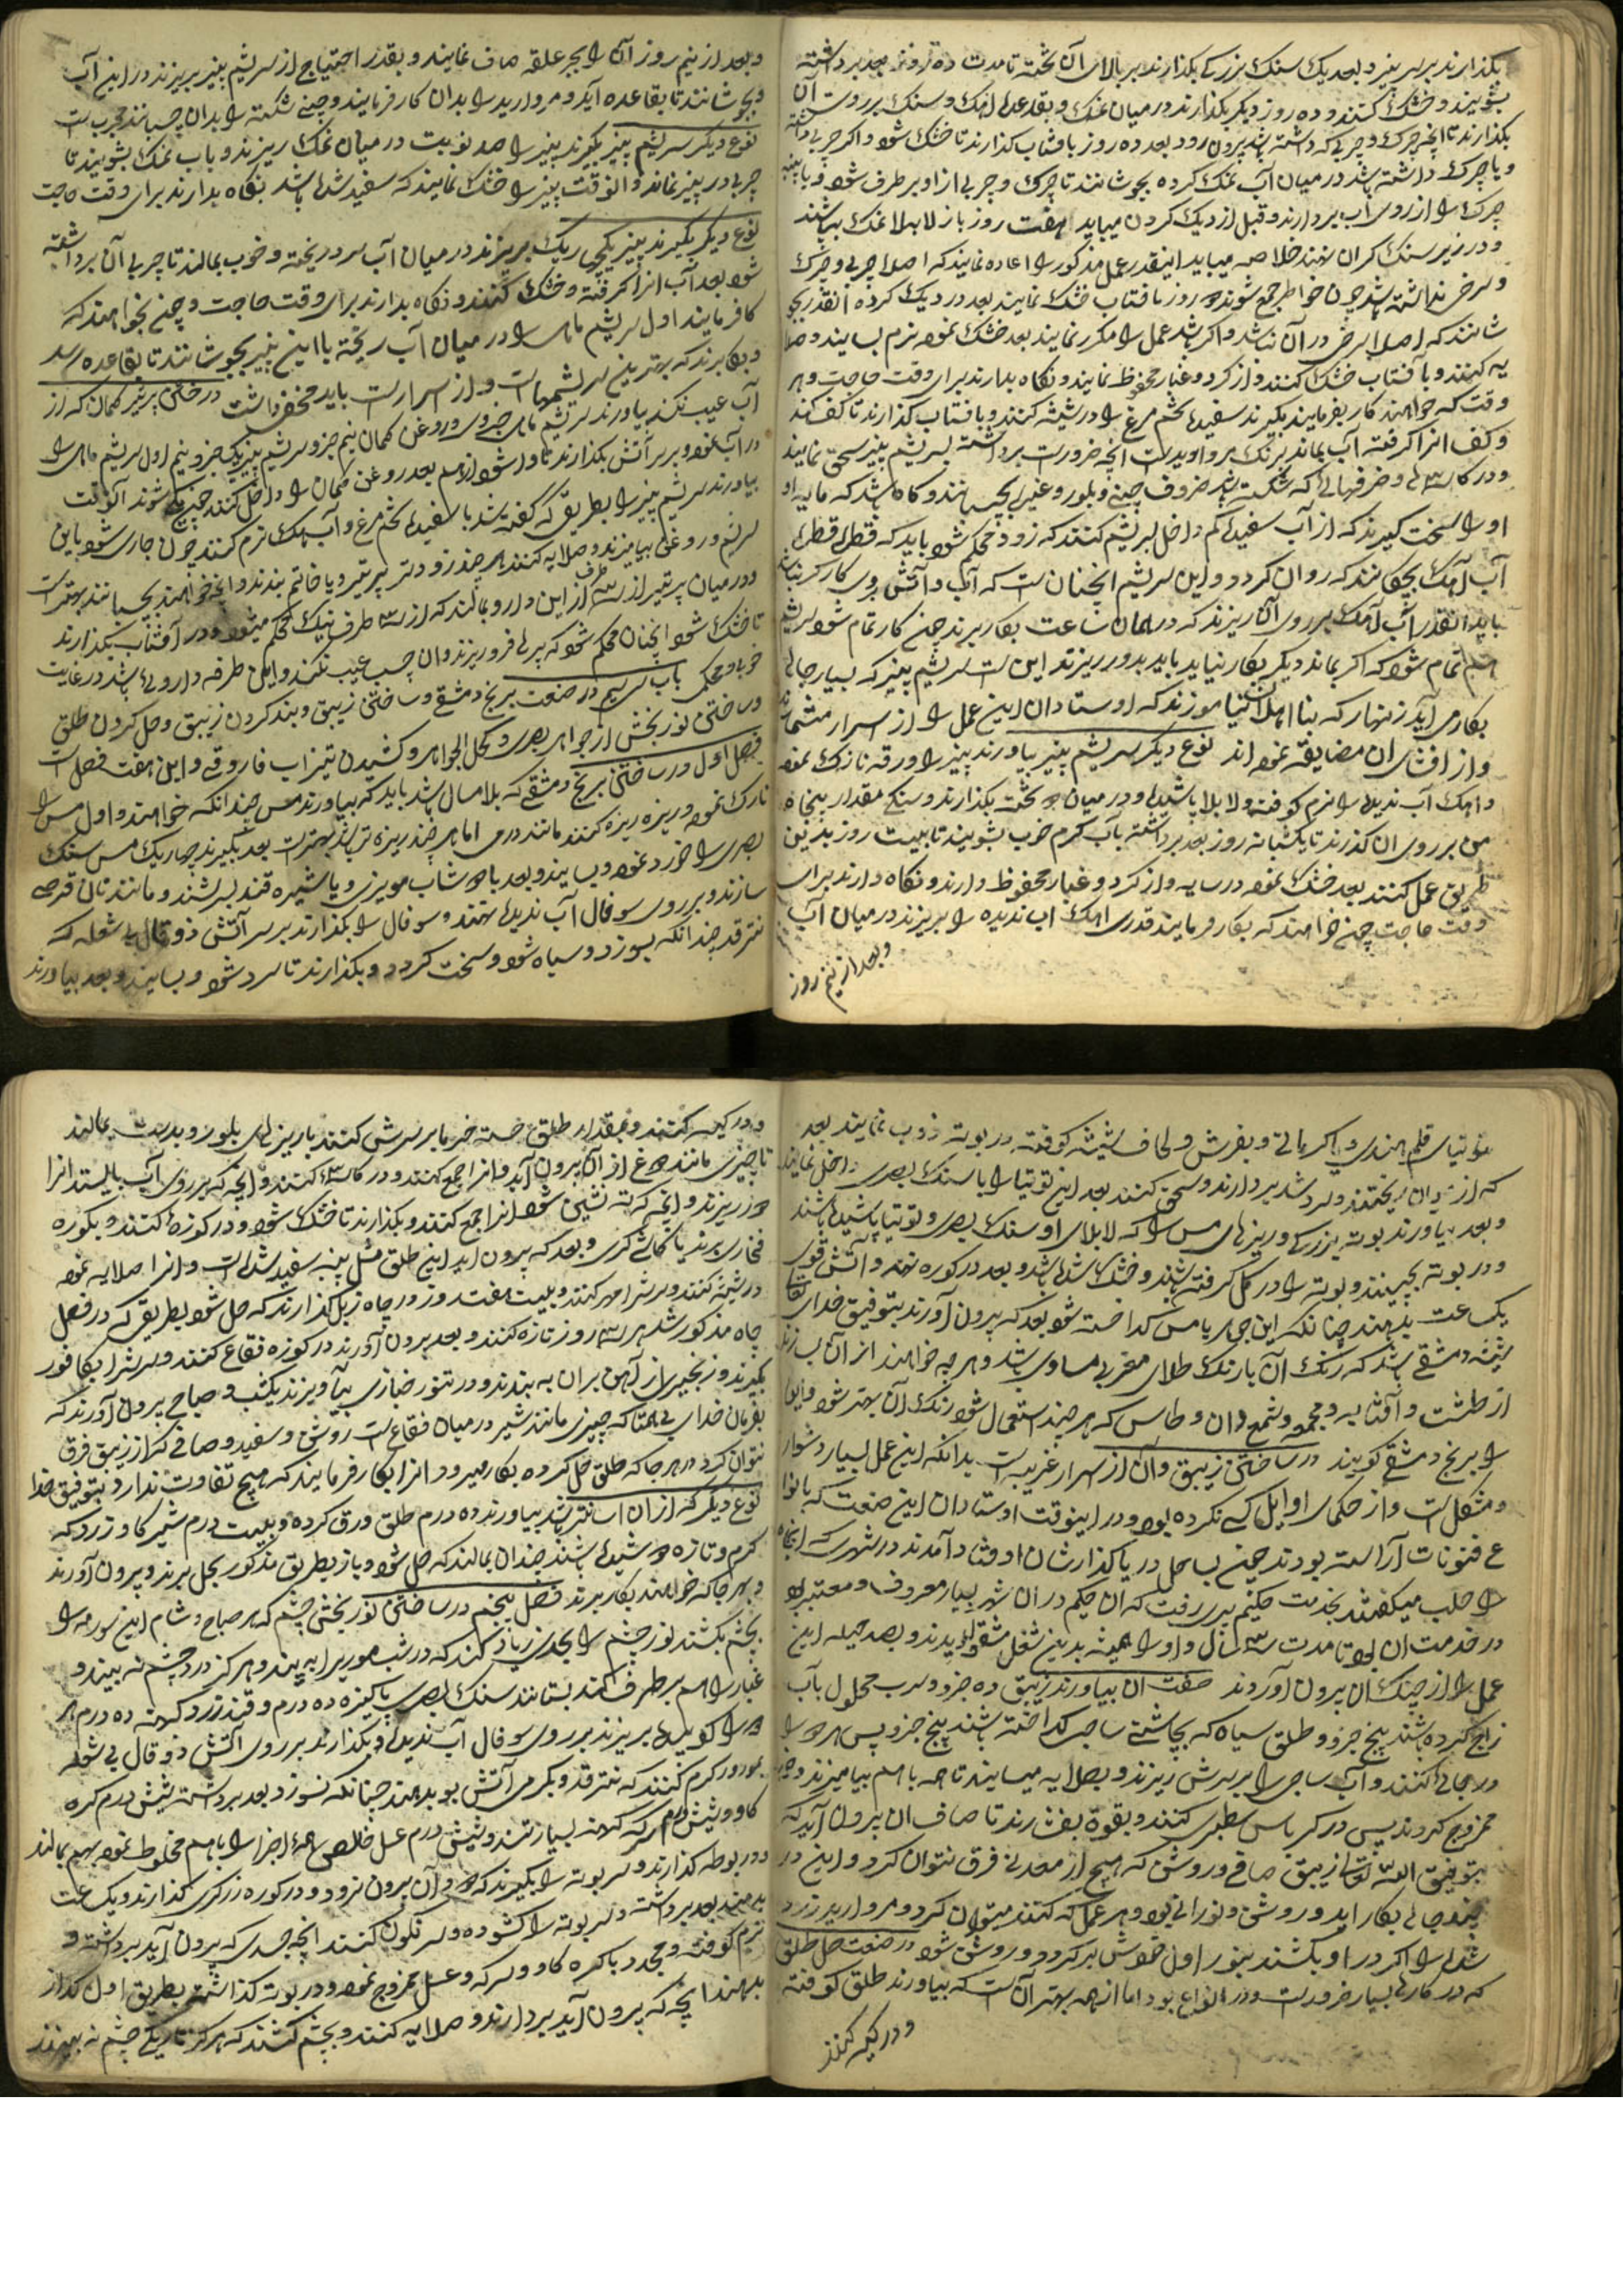 بگذارند بر سر پنیر و بعد یک سنک بزرکی بگذارند بر بالای آن تخته تا مدت ده روز بعد برداشته
بشویند و خشک کنند و ده روز دیکر بگذارند در میان نمک و بقدعدل اهک و سنک بر روی آن
بگذارند تا انچه چرک و چربی که داشته باشد بیرون رود بعد ده روز بافتاب گذارند تا خشک شود و اکر چربی داشته
و یا چرک داشته باشد در میان آب نمک کرده بجوشانند تا چرک و چربی از او بر طرف شود و باید
چرک را از روی آب بردارند و قبل از دیک کردن میباید هفت روز باز لابلا نمک بپاشند
و در زیر سنک کران نهند خلاصه میباید اینقدر عمل مذکور را اعاده نمایند که اصلا چربی و چرک
و سرخی نداشته باشد چون خواطر جمع شوند روز بافتاب خشک نمایند بعد در دیک کرده انقدر بجو
شانند که اصلا سرخی در آن نباشد و اکر باشد عمل را مکرر نمایند بعد خشک نموده نرم بسایند و صلا
یه کنند و بآفتاب خشک کنند و از کرد و غبار محفوظ نمایند و نکاه بدارند برای وقت حاجت و هر
وقت که خواهند کار بفرمایند بکیرند سفیده تخم مرغ را در شیشه کنند و بافتاب گذارند تا کف کند
و کف انرا کرفته آب بماند برنک مروارید است انچه ضرورت برداشته بسریشم پنیر سحق نمایند
و در کارها و ظرفهائی که شکسته باشد ظروف چینی و بلور و غیره بچسپانند و کاه باشد که مالیه او
او را سخت کیرند که از آب سفیده کم داخل سریشم کنند که زود محکم شود باید که قطره قطره
آب اهک بچکانند که روان کردد و این سریشم انچنان است که آب و آتش بروی کارکر نباشد
باید انقدر آب اهک بر روی آن ریزند که در همان ساعت بکار برند چون کار تمام شود سریشم
هم تمام شود که اکر بماند دیکر بکار نیاید باید بدور ریزند این است سریشم پنیر که بسیار جائی
بکار می آید زنهار که بنا اهلان نیاموزند که اوستادان این عمل را از اسرار شمرده اند
و از افشای ان مضایقه نموده اند نوع دیکر سریشم پنیر بیاورند پنیر را ورقه نازک نموده
و اهک آب ندیده را نرم کوفته و لابلا پاشیده و در میان دو تخته بگذارند و سنکی مقدار پنجاه
من بر روی ان گذرند تا یکشبانه روز بعد برداشته بآب کرم خوب بشویند تا بیست روز بدین
طریق عمل کنند بعد خشک نموده در سایه و از کرد و غبار محفوظ دارند و نکاه دارند برای
وقت حاجت چون خواهند که بکار فرمایند قدری اهک اب ندیده را بریزند در میان آب
و بعد از نیم روز
و بعد از نیم روز آن را بجر علقه صاف نمایند و بقدر احتیاج از سریشم پنیر بریزند در این آب
و بجوشانند تا بقاعده آید و مروارید را بدان کار فرمایند و چینی شکسته را بدان چسبانند مجرب است
نوع دیکر سریشم پنیر بکیرند پنیر را صد نوبت در میان نمک ریزند و باب نمک بشویند تا
چربی در پنیر نماند و انوقت پنیر را خشک نمایند که سفید شده باشد نکاه بدارند برای وقت حاجت
نوع دیکر بکیرند پنیر یکچی ریک بریزند در میان آب سرد ریخته و خوب بمالند تا چربی آن برداشته
شود بعد آب انرا کرفته و خشک کنند و نکاه بدارند برای وقت حاجت و چون بخواهند که
کافرمایند اول سریشم ماهی را در میان آب ریخته با این پنیر بجوشانند تا بقاعده رسد
و بکار برند که بهترین سریشمهاست و از اسرار است باید مخفی داشت در ختایی پر تیر کمان که از
آب عیب نکند بیاورند سریشم ماهی جزوی و روغن کمان نیم جزو سریشم پنیر یک جزو نیم اول سریشم ماهی را
در آب نموده بر سر آتش بگذارند تا وا شود از هم بعد روغن کمان را داخل کنند چون شوند انوقت
بیاورند سریشم پنیر را بطریقی که کفته شد با سفیده تخم مرغ و آب اهک نرم کنند چون جاری شود باین
سریشم و روغن بیامیزند و صلایه کنند هر چند زودتر بر تیر و یا خاتم بندند و انچه خواهند بچسپانند بهتر است
و در میان پر تیر از سه طرف از این دارو بمالند که از سه طرف نیک محکم میشود و در آفتاب بگذارند
تا خشک شود انچنان محکم شود که پر ها فرو ریزند و ان چسب عیب نکند و این طرفه داروئی باشد در غایت
خوبی و محکمی باب سی‌ام در صنعت برنج دمشقی و ساختن زیبق و بند کردن زیبق و حل کردن طلق
و ساختن نور بخش از جواهر بصری و کحل الجواهر و کشیدن تیزاب فاروقی و این هفت فصل است
فصل اول در ساختن برنج دمشقی که بلا مسال باشد باید که بیاورند مس چندانکه خواهند و اول مس را
نازک نموده و ریزه ریزه کنند مانند درمی اما هر چند ریزه تر باشد بهتر است بعد بکیرند چهاریک مس سنک
بصری را خورد نموده و بسایند و بعد با دوشاب مویزی و یا شیره قند بسرشند و مانند نان قرصه
سازند و بر روی سوفال آب ندیده نهند و سوفال را بگذارند بر سر آتش ذوقال بی شعله که
نترقد چندانکه بسوزد و سیاه شود و سخت کردد و بگذارند تا سرد شود و بسایند و بعد بیاورند
توتیای قلم هندی و اکر مالی و بفرش و لحاف شیشه کوفته در بوته ذوب نمایند بعد
که از ان ریختند و سرد شد بردارند و سحق کنند بعد این توتیا را با سنک بصری داخل نمایند
و بعد بیاورند بوته بزرکی و ریزهای مس را که لابلای او سنک بصری و توتیا پاشیده باشند
و در بوته بچینند و بوته را در کل کرفته باشند و خشک شده باشد و بعد در کوره نهند و آتش قوی
یک ساعت بدهند چنانکه این جمله با مس کداخته شود بعد که بیرون آورند بتوفیق خدای تعالی
شبه دمشقی باشد که رنک آن با رنک طلای مغربی مساوی باشد و هر چه خواهند از آن بسازند
از طشت و آفتابه و مجمره و شمع دان و طاس که هر چند استعمال شود رنک آن بهتر شود و این
را برنج دمشقی کویند در ساختن زیبق و آن از اسرار غریب است بدانکه این عمل بسیار دشوار
و مشکل است و از حکمای اوایل کسی نکرده بود و در اینوقت اوستادان این صنعت که بانوا
ع فنونات آراسته بودند چون بساحل دریا گذارشان اوفتاد آمدند در شهری که انجا
را حلب میکفتند بخدمت حکیم پدری رفت که ان حکیم در ان شهر بسیار معروف و معتبر بود
در خدمت ان بود تا مدت سه سال و او را همیشه بدین شغل مشغول دیدند و بصد حیله این
عمل را از چنک ان بیرون آوردند صفت ان بیاورند زیبق ده جزو و سرب محلول بآب
زاج کرده باشند پنج جزو و طلق سیاه که بچاشنی ساجی کداخته باشند پنج جزو پس هر دو را
در جائی کنند و آب ساجی را بر سرش ریزند و بصلایه میسایند تا همه با هم بیامیزند و چون
ممزوج کردند پس در کرباس سطبری کنند و بقوة بفشارند تا صاف ان بیرون آید که
بتوفیق الله تعالی زیبق صافی و روشن که هیچ از معدنی فرق نتوان کرد و این در
چند جائی بکار اید و روشن و نورانی بود و هر عمل که کنند میتوان کرد و مروارید زرد
شده را اکر در او بکشند بنور اول خوش برکردد و روشن شود در صنعت حل طلق
که در کارها بسیار ضرور است و در انواع بود اما از همه بهتر آن است که بیاورند طلق کوفته
و در کیسه کنند
و در کیسه کنند و بمقدار طلق خسته خرما بر سرش کنند با ریزهای بلور و بدست بمالند
تا چیزی مانند دوغ از آن بیرون آید و انرا جمع کنند و در کاسه کنند و انچه که بر روی آب بایستد انرا
دور ریزند و انچه که ته نشین شود انرا جمع کنند و بگذارند تا خشک شود و در کوزه کنند و بکوره
فخاری برند یا کاشی کری و بعد که بیرون اید این طلق مثل پنبه سفید شده است و انرا صلایه نموده
در شیشه کنند و سرش را مهر کنند و بیست هفت روز در چاه زبل گذارند که حل شود بطریقی که در فصل
چاه مذکور شد هر سه روز تازه کنند و بعد بیرون آورند در کوزه فقاع کنند و سرش را بکافور
بکیرند و زنجیری از آهن بران به بندند و در تنور خبازی بیاویزند یکشب و صباح بیرون آورند که
بفرمان خدای بی همتا که چیزی مانند شیر در میان فقاع است روشن و سفید و صافی که از زیبق فرق
نتوان کرد و هر جا که طلق حل کرده بکار میرود انرا بکار فرمایند که هیچ تفاوت ندارد و بتوفیق خدا
نوع دیکر که از ان اسانتر باشد بیاورند ده درم طلق ورق کرده و بیست درم شیر کاو زرد که
کرم و تازه دوشیده باشند چندان بمالند که حل شود و باز بطریق مذکور بحل برند و بیرون آورند
و بهر جا که خواهند بکار برند فصل پنجم در ساختن نور بخش چشم که هر صباح و شام این سورمه را
بچشم بکشند نور چشم را بحدی زیاد کند که در شب موری را به بیند و هرکز درد چشم نه بیند و
غبار را هم بر طرف کند بستانند سنک بصری پاکیزه ده درم و قند زرد کهنه ده درم هر
دو را کوبیده بریزند بر روی سوفال آب ندیده و بگذارند بر روی اتش ذوقال بی شعله
بمرور کرم کنند که نترقد و بکرمی آتش بو بدهند چنانکه نسوزد بعد برداشته شش درم کره
کاو و شش درم سرکه کهنه بسیار تند و شش درم عسل خالص همه اجزا را باهم مخلوط نموده بهم بمالند
و در بوطه گذارند و سر بوته را بکیرند که دود آن بیرون نرود و در کوره زرکری گذارند و یک ساعت
بدمند بعد برداشته و سر بوته را کشوده و سر نکون کنند انچه جسدی که بیرون آید برداشته و
نرم کوفته و مجدد با کره کاو و سرکه و عسل ممزوج نموده و در بوته کذاشته بطریق اول کداز
بدهند انچه که بیرون آید بردارند و صلایه کنند و بچشم کشند که هرکز تاریکی چشم نه بینند